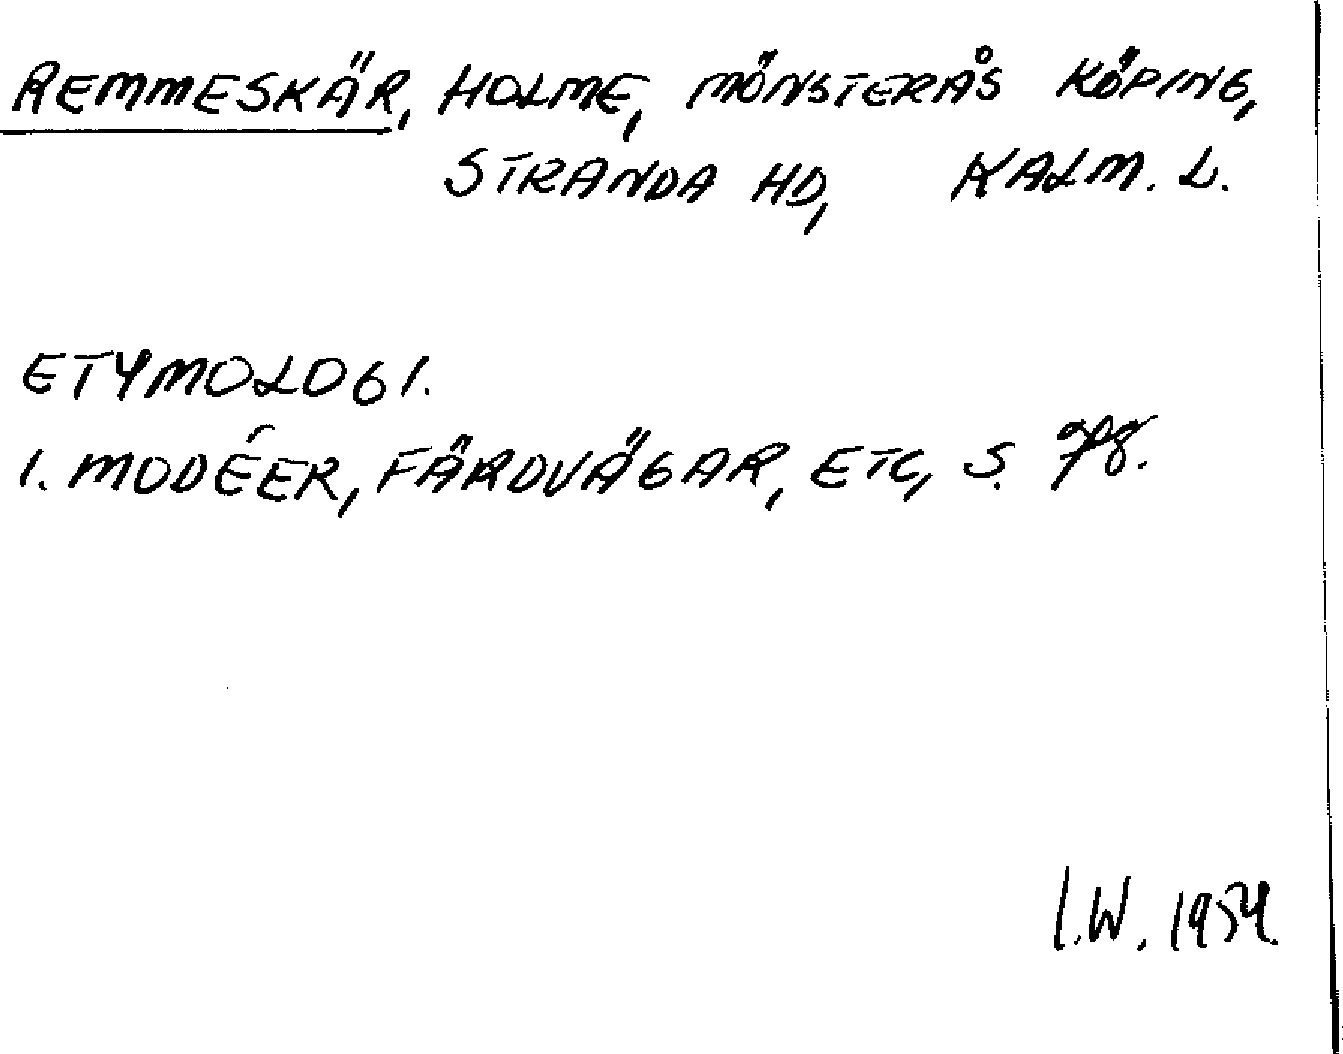 REMMESKÄR, HOLME, MÖNSTERÅS KÖPING,
STRANDA HD, KALM. L.
ETYMOLOGI.
1. MODÉER, FÄRDVÄGAR, ETC, S.
I.W. 1954.